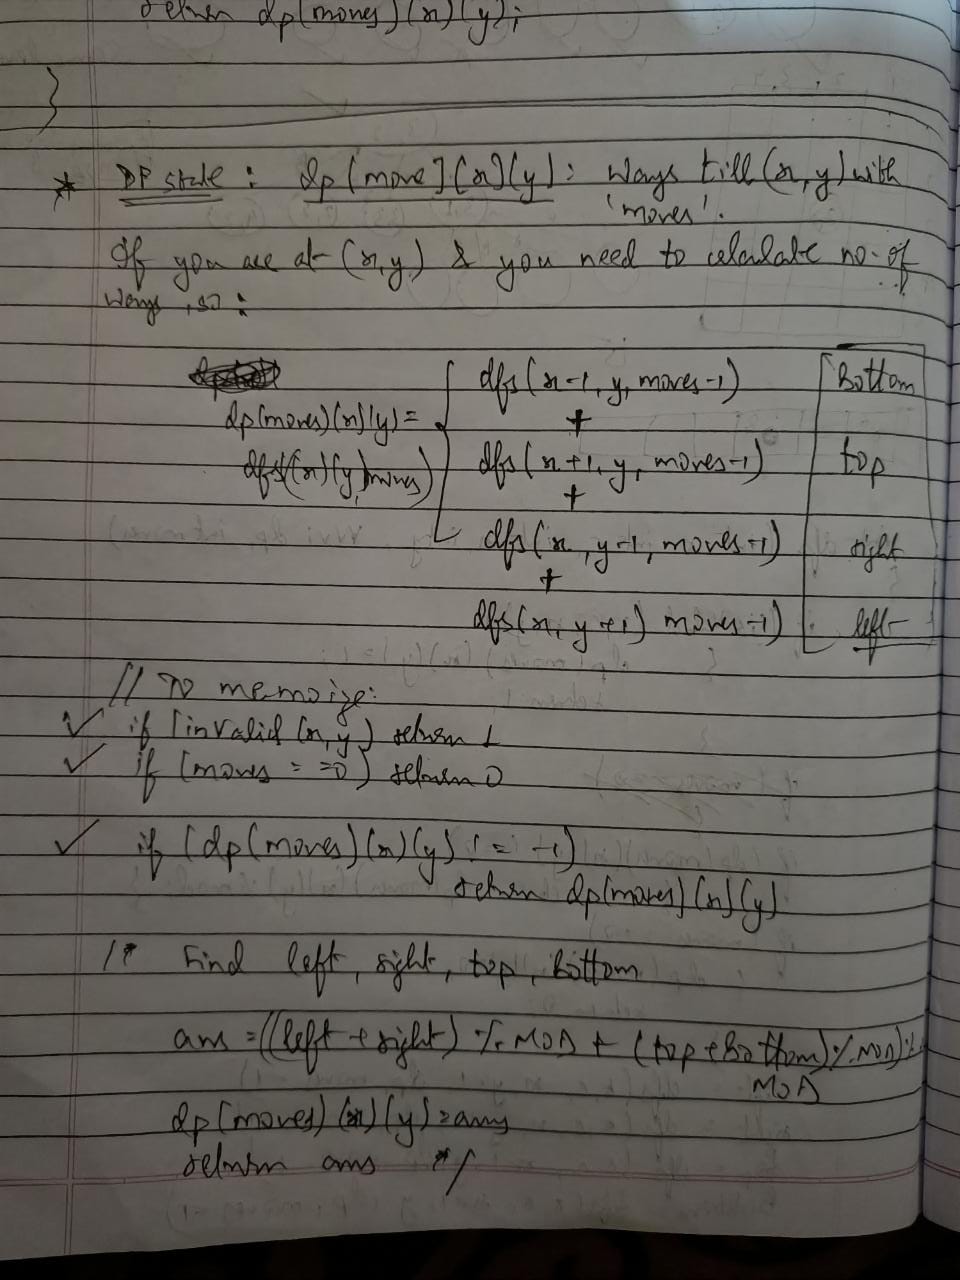 return dp[moves][x][y];
}
* DP state : dp[move][x][y] : Ways till (x, y) with
'moves'.
If you are at (x, y) & you need to calculate no. of
ways, so :
dp[moves][x][y] =
dfs([x][y], moves)
dfs(x-1, y, moves-1) Bottom
+
dfs(x+1, y, moves-1) top
+
dfs(x, y-1, moves-1) right
+
dfs(x, y+1) moves-1) left
// To memoize:
✓ if [invalid (x, y) return 1
✓ if (moves == 0) return 0
✓ if (dp[moves][x][y] != -1)
return dp[moves][x][y]
/* Find left, right, top, bottom
ans = ((left + right) % MOD + (top + Bottom) % MOD) %
MOD
dp[moves][x][y] = ans
return ans */